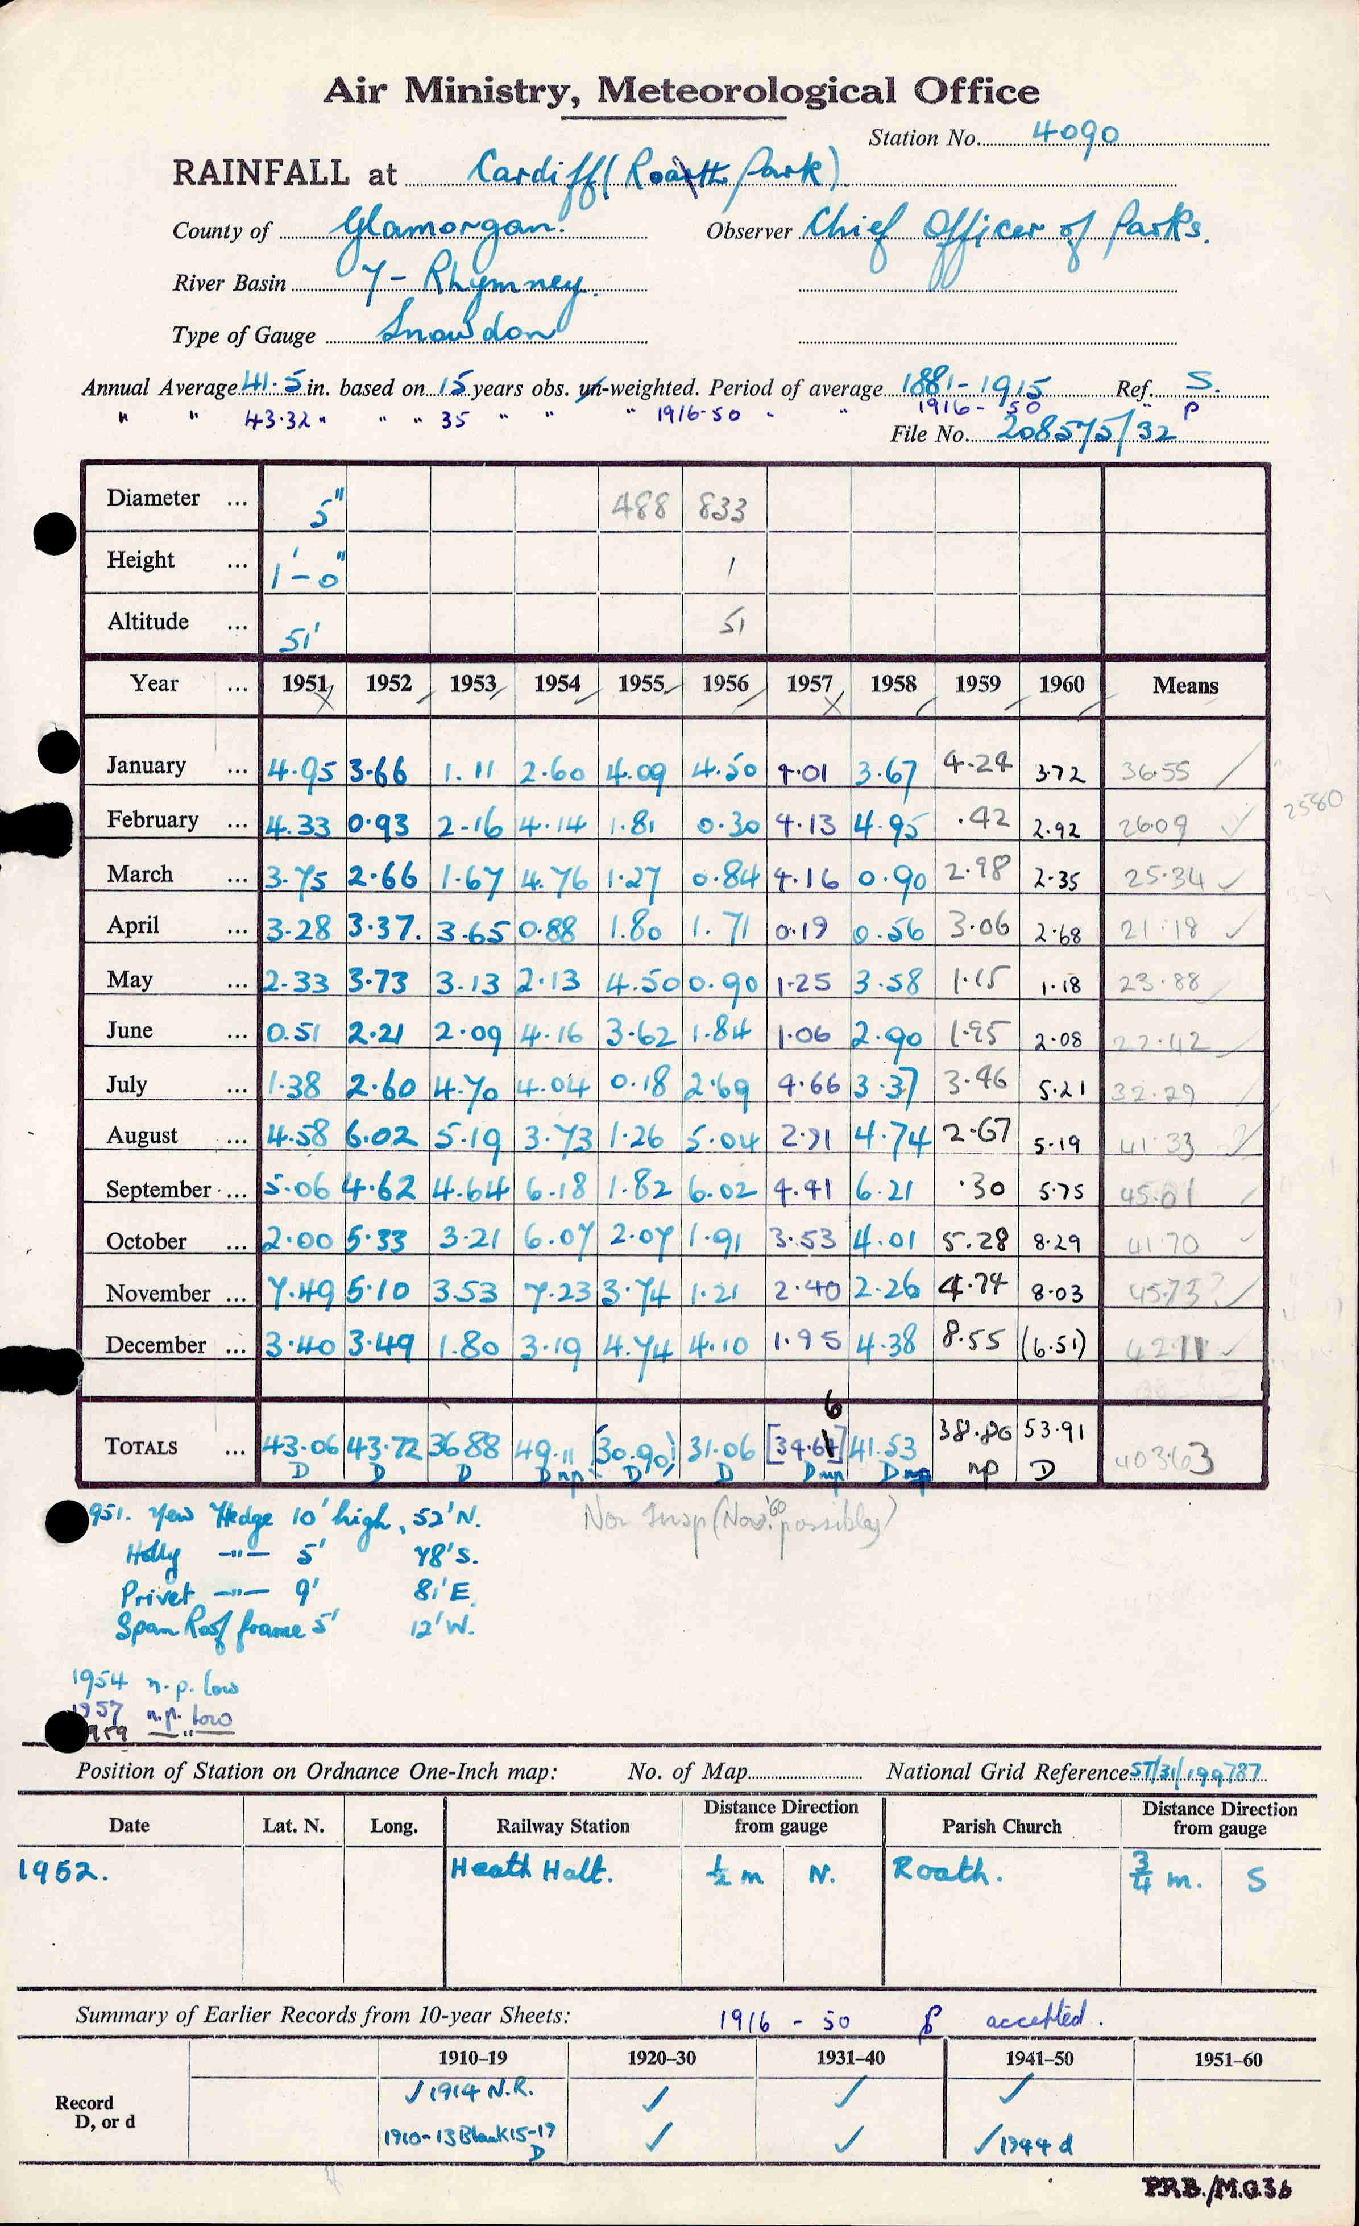 Air Ministry, Meteorological Office
Station No. 4090
RAINFALL at Cardiff (Roath Park)
County of Glamorgan. Observer Chief Officer of Parks.
River Basin 7 - Rhymney.
Type of Gauge Snowdon
Annual Average 41.5 in. based on 15 years obs. un-weighted. Period of average 1881-1915 Ref. S.
" " 43.32 " " " 35 " " " 1916-50 " " 1916-50 " P
File No. 208575/32
Diameter ... 5" 488 833
Height ... 1'-0" 1
Altitude ... 51' 51
Year ... 1951 1952 1953 1954 1955 1956 1957 1958 1959 1960 Means
January ... 4.95 3.66 1.11 2.60 4.09 4.50 4.01 3.67 4.24 3.72 36.55
February ... 4.33 0.93 2.16 4.14 1.81 0.30 4.13 4.95 .42 2.92 26.09 2580
March ... 3.75 2.66 1.67 4.76 1.27 0.84 4.16 0.90 2.98 2.35 25.34
April ... 3.28 3.37. 3.65 0.88 1.80 1.71 0.19 0.56 3.06 2.68 21.18
May ... 2.33 3.73 3.13 2.13 4.50 0.90 1.25 3.58 1.15 1.18 23.88
June ... 0.51 2.21 2.09 4.16 3.62 1.84 1.06 2.90 1.95 2.08 22.42
July ... 1.38 2.60 4.70 4.04 0.18 2.69 4.66 3.37 3.46 5.21 32.29
August ... 4.58 6.02 5.19 3.73 1.26 5.04 2.91 4.74 2.67 5.19 41.33
September ... 5.06 4.62 4.64 6.18 1.82 6.02 4.41 6.21 .30 5.75 45.01
October ... 2.00 5.33 3.21 6.07 2.07 1.91 3.53 4.01 5.28 8.29 41.70
November ... 7.49 5.10 3.53 7.23 3.74 1.21 2.40 2.26 4.74 8.03 45.73?
December ... 3.40 3.49 1.80 3.19 4.74 4.10 1.95 4.38 8.55 (6.51) 42.11
6
TOTALS ... 43.06 43.72 36.88 49.11 (30.90) 31.06 [34.67] 41.53 38.80 53.91 403.63
D D D D np D D D np D np np D
1951. Yew Hedge 10' high, 52' N. Non Insp (Nov. '60 possibly)
Holly -"- 5' 78' S.
Privet -"- 9' 81' E.
Span Roof frame 5' 12' W.
1954 n.p. low
1957 n.p. low
1959 -"-
Position of Station on Ordnance One-Inch map: No. of Map National Grid Reference ST/31/199787
Date Lat. N. Long. Railway Station Distance Direction from gauge Parish Church Distance Direction from gauge
1952. Heath Halt. ½ m N. Roath. ¾ m. S
Summary of Earlier Records from 10-year Sheets: 1916 - 50 P accepted.
1910-19 1920-30 1931-40 1941-50 1951-60
Record ✓ 1914 N.R. ✓ ✓ ✓
D, or d 1910-13 Blank 15-19 D ✓ ✓ ✓ 1944 d
P.R.B./M.O.36